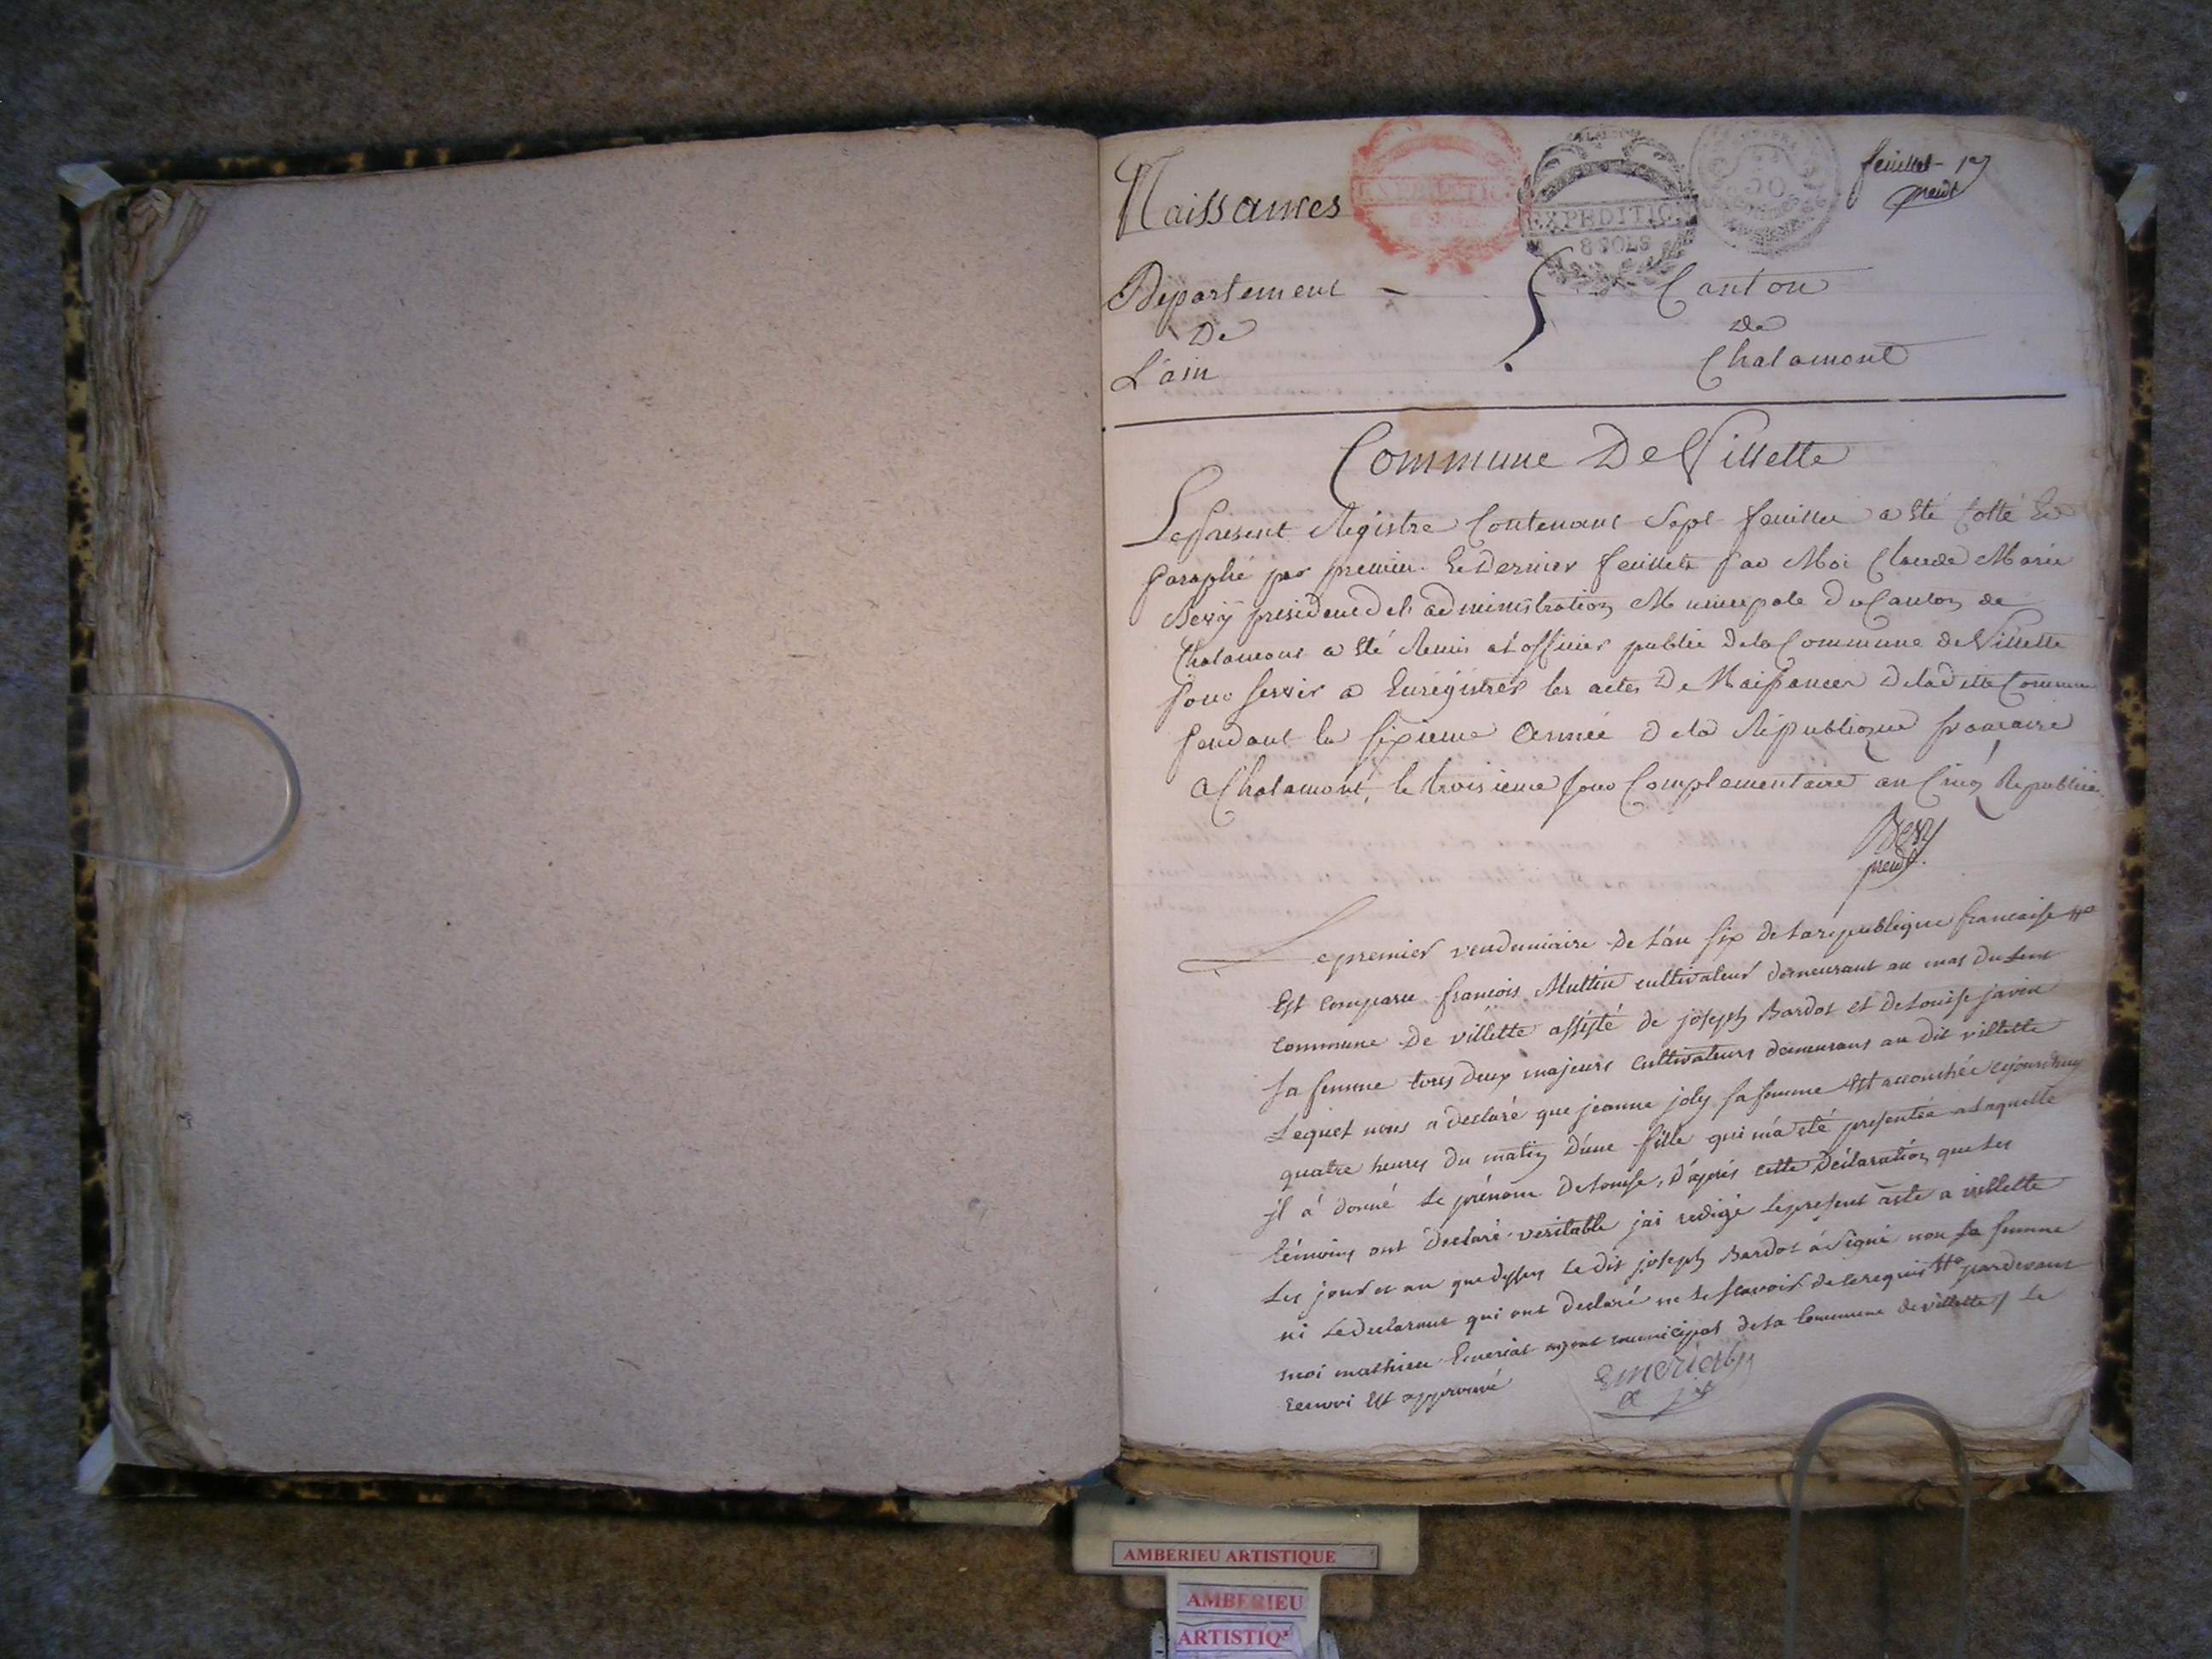 Naissances
EXPEDITION
EXPEDITION
8 SOLS
50
feuillet 1er
presidt
Departement
Canton
De
de
L'ain
Chalamont
Commune De Villette
Le present Registre Contenant Sept feuillets a été Cotté Et
paraphé par premier Et Dernier feuillets par Moi Claude Marie
président del'administration Municipale du Canton de
Chalamont a été Remis a l'officier public dela Commune de Villette
pour servir a Enregistrer les actes De Naissances Deladitte Commune
pendant la sixieme Année dela République francaise
a Chalamont, le troisieme jour Complementaire an Cinq Republicain
presidt
Le premier vendemiaire de L'an six de La republique francaise
Est comparu francois Muttin cultivateur demeurant au mas
commune De villette assisté de joseph Bardot et De Louise javin
sa femme tous deux majeurs cultivateurs demeurans au dit villette
Lequel nous a declaré que jeanne joly sa femme Est accouchée cejourdhuy
quatre heures du matin D'une fille qui m'a eté presentée a Laquelle
il à donné Le prénom De Louise, D'aprés cette Déclaration que Les
témoins ont déclaré veritable jai redigé Le present acte a villette
Les jour et an que dessus Le dit joseph Bardot à signé non sa femme
ni Le declarant qui ont declaré ne Le scavoir de ce requis pardevant
moi mathieu Emeriat agent municipal de La Commune de villette / Le
renvoi Est approuvé
Emeriat
AMBERIEU ARTISTIQUE
AMBERIEU
ARTISTIQ